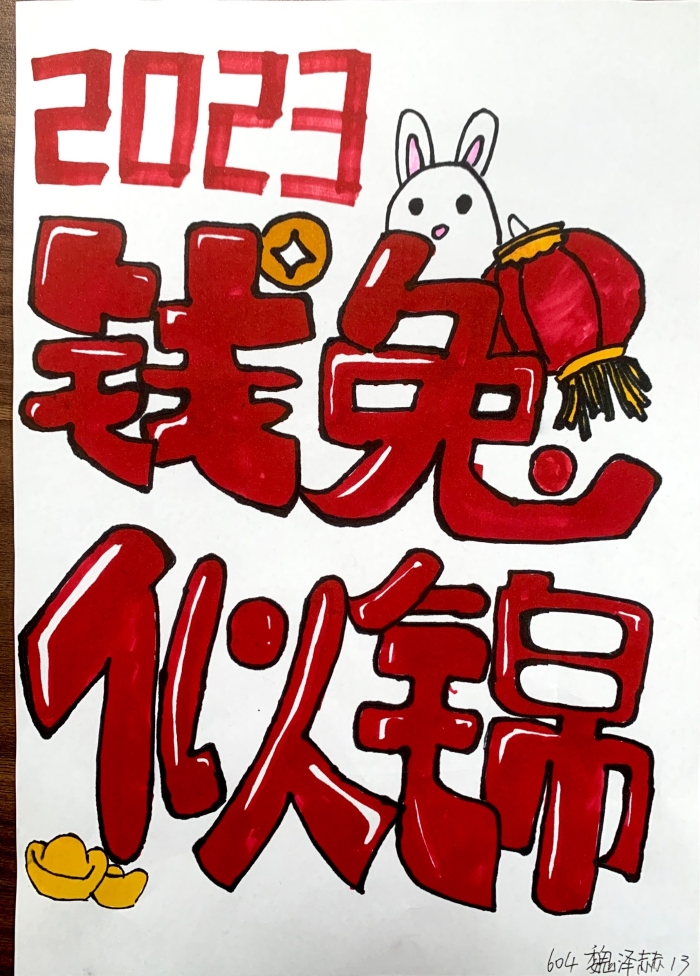 2023
钱兔
似锦
604 魏泽赫 13